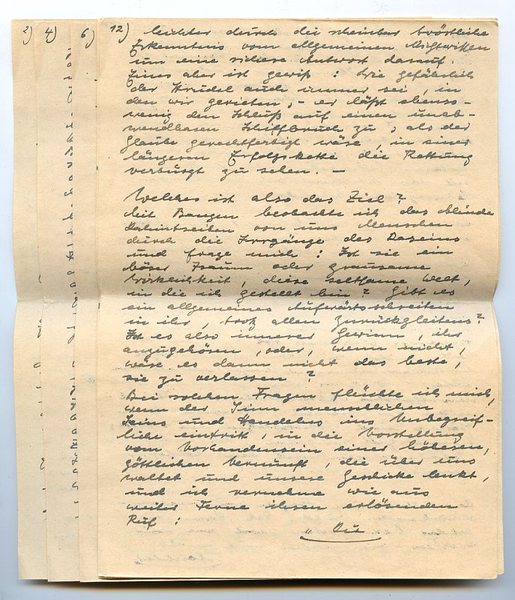 2) 4) 6) 12) leichter durch die scheinbar tröstliche
Erkenntnis vom allgemeinen
um eine sichere Antwort darauf.
Eines aber ist gewiß: Wie gefährlich
der Strudel auch immer sei, in
den wir gerieten, - er läßt ebenso-
wenig den Schluß auf einen unab-
wendbaren Schiffbruch zu, als der
Glaube gerechtfertigt wäre, in einer
längeren Erfolgskette die Rettung
verbürgt zu sehen. -
Welches ist also das Ziel?
Mit Bangen beobachte ich das blinde
Dahintreiben von uns Menschen
durch die Irrgänge des Daseins
und frage mich: Ist sie ein
böser Traum oder grausame
Wirklichkeit, diese seltsame Welt,
in die ich gestellt bin? Gibt es
ein allgemeines Aufwärtsschreiten
in ihr, trotz allen Zurückgleitens?
Ist es also innerer Gewinn ihr
anzugehören, oder, wenn nicht,
wäre es dann nicht das beste,
sie zu verlassen?
Bei solchen Fragen flüchte ich mich,
wenn der Sinn menschlichen
Seins und Handelns ins Unbegreif-
liche eintritt, in die Vorstellung
vom Vorhandensein einer höheren,
göttlichen Vernunft, die über uns
waltet und unsere Geschicke lenkt,
und ich vernehme wie aus
weiter Ferne ihren erlösenden
Ruf: